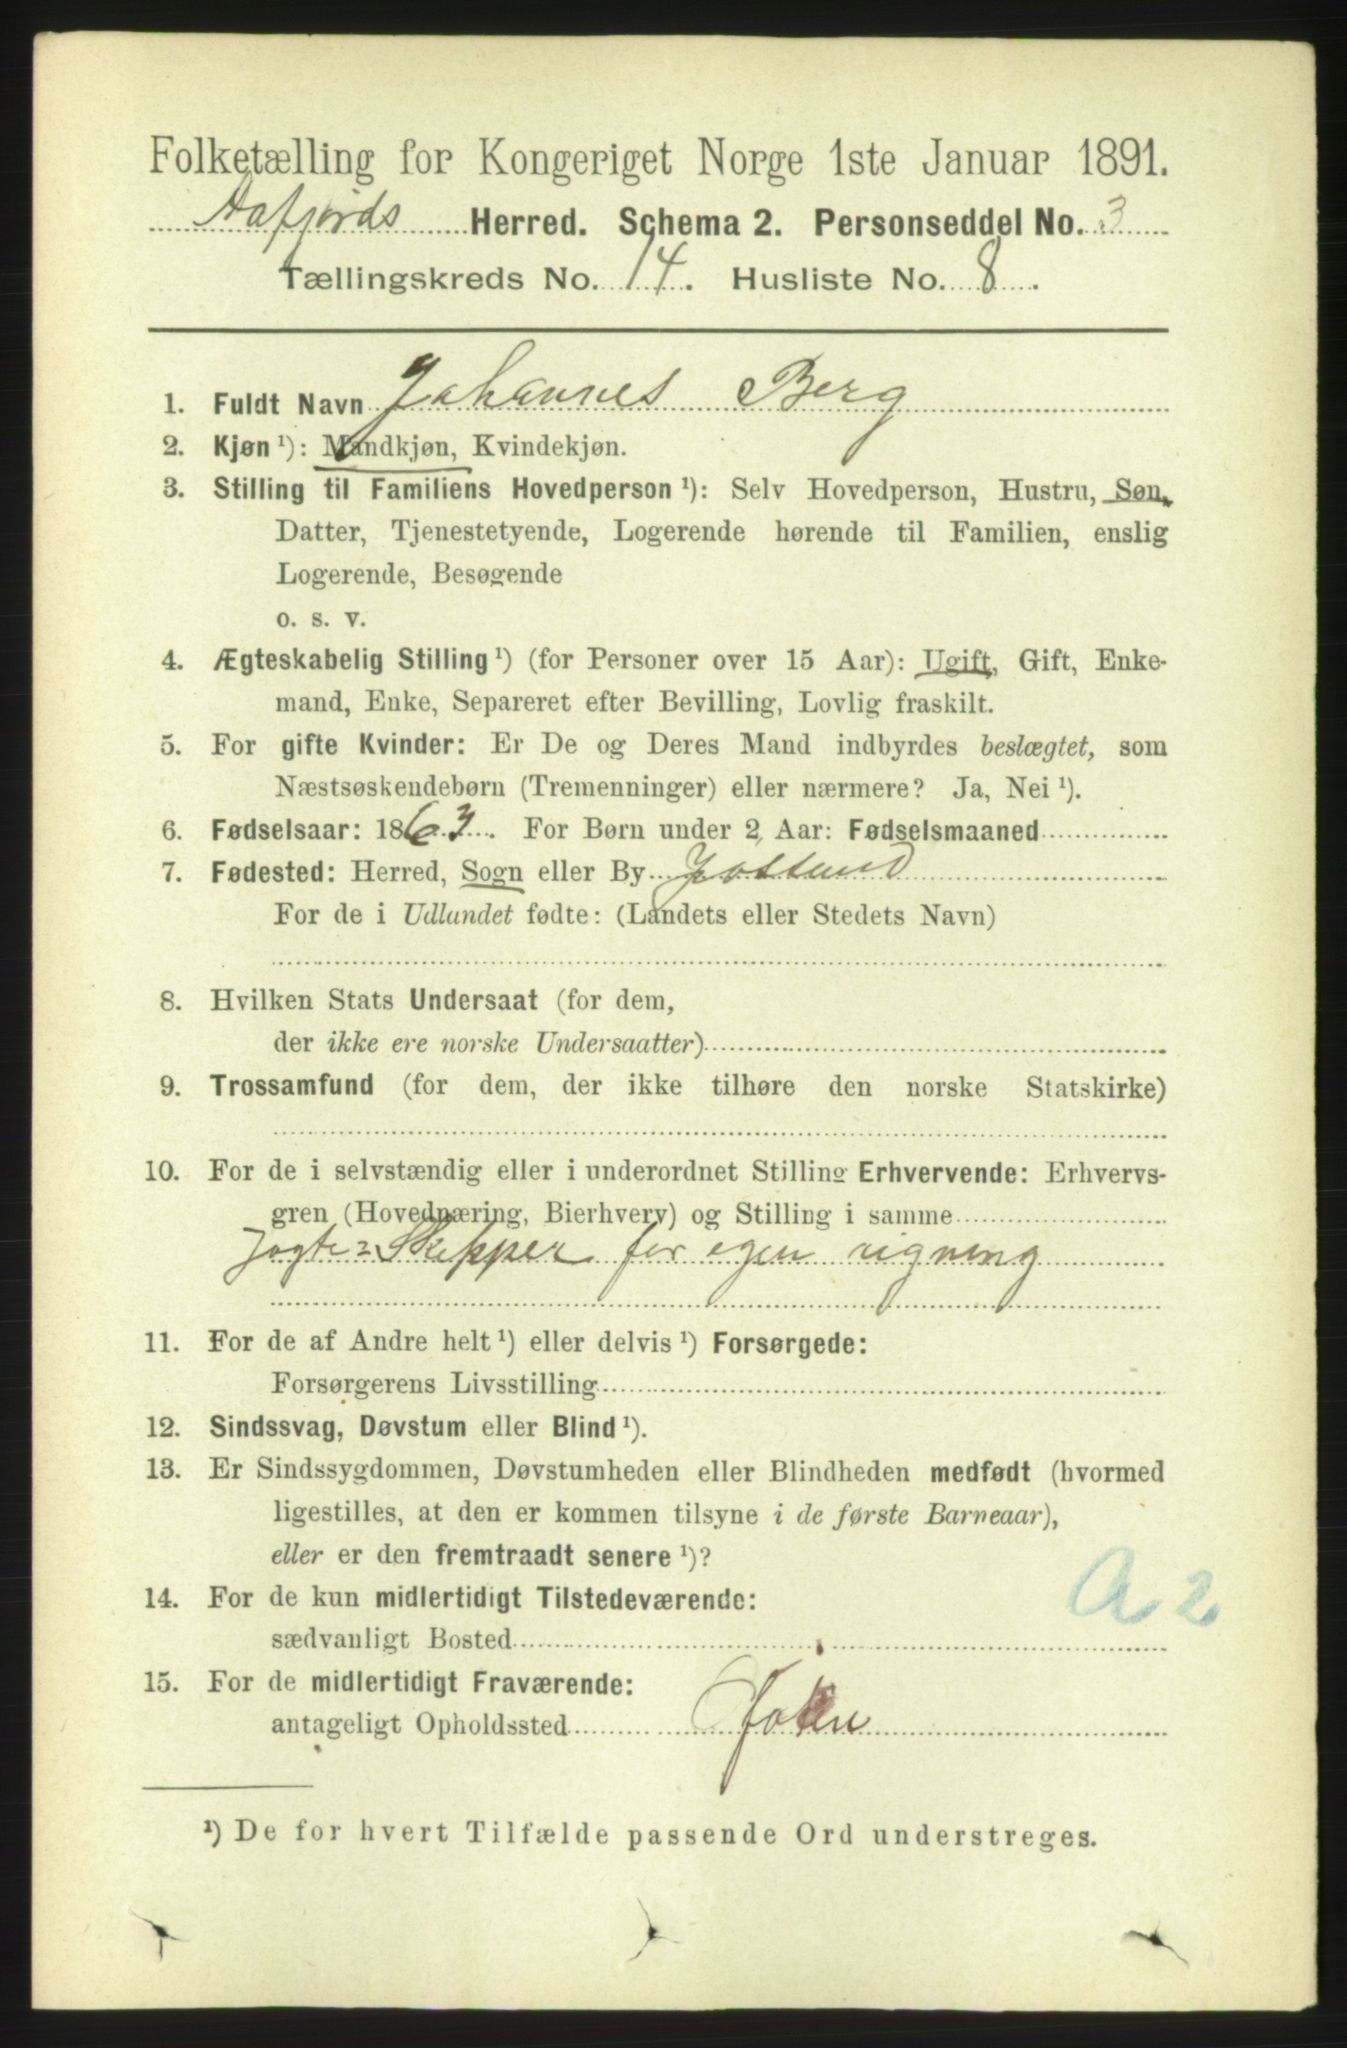 Folketælling for Kongeriget Norge 1ste Januar 1891.
Aafjords Herred. Schema 2. Personseddel No. 3
Tællingskreds No. 14. Husliste No. 8.
1. Fuldt Navn Johannes Berg
2. Kjøn ¹): Mandkjøn, Kvindekjøn.
3. Stilling til Familiens Hovedperson ¹): Selv Hovedperson, Hustru, Søn,
Datter, Tjenestetyende, Logerende hørende til Familien, enslig
Logerende, Besøgende
o. s. v.
4. Ægteskabelig Stilling ¹) (for Personer over 15 Aar): Ugift, Gift, Enke-
mand, Enke, Separeret efter Bevilling, Lovlig fraskilt.
5. For gifte Kvinder: Er De og Deres Mand indbyrdes beslægtet, som
Næstsøskendebørn (Tremenninger) eller nærmere? Ja, Nei ¹).
6. Fødselsaar: 1863. For Børn under 2 Aar: Fødselsmaaned
7. Fødested: Herred, Sogn eller By Jøssund
For de i Udlandet fødte: (Landets eller Stedets Navn)
8. Hvilken Stats Undersaat (for dem,
der ikke ere norske Undersaatter)
9. Trossamfund (for dem, der ikke tilhøre den norske Statskirke)
10. For de i selvstændig eller i underordnet Stilling Erhvervende: Erhvervs-
gren (Hovednæring, Bierhverv) og Stilling i samme
Jagte=Skipper for egen rigning
11. For de af Andre helt ¹) eller delvis ¹) Forsørgede:
Forsørgerens Livsstilling
12. Sindssvag, Døvstum eller Blind ¹).
13. Er Sindssygdommen, Døvstumheden eller Blindheden medfødt (hvormed
ligestilles, at den er kommen tilsyne i de første Barneaar),
eller er den fremtraadt senere ¹)?
14. For de kun midlertidigt Tilstedeværende:
sædvanligt Bosted
A 2
15. For de midlertidigt Fraværende:
antageligt Opholdssted
¹) De for hvert Tilfælde passende Ord understreges.